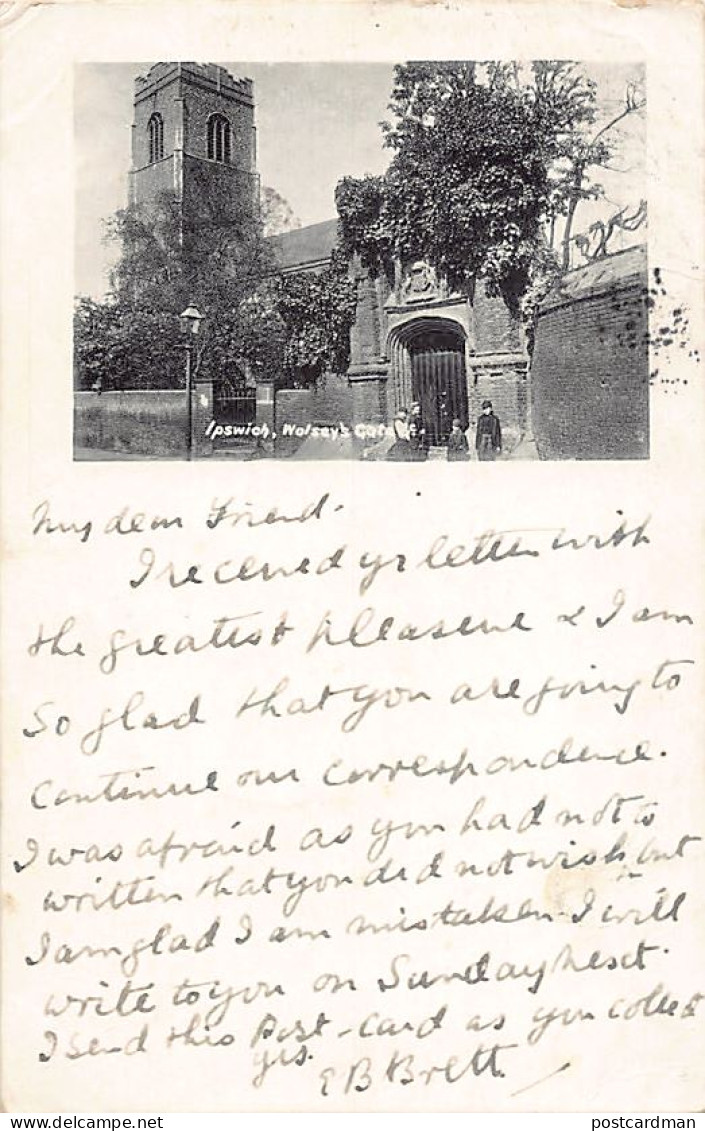 Ipswich, Wolsey's Gate
My dear Friend.
I received yr letter with
the greatest pleasure & I am
So glad that you are going to
continue our correspondence.
I was afraid as you had not
written that you did not wish to but
I am glad I am mistaken. I will
write to you on Sunday next.
I send this Post-card as you collect
yrs.
E B Brett.
postcardman